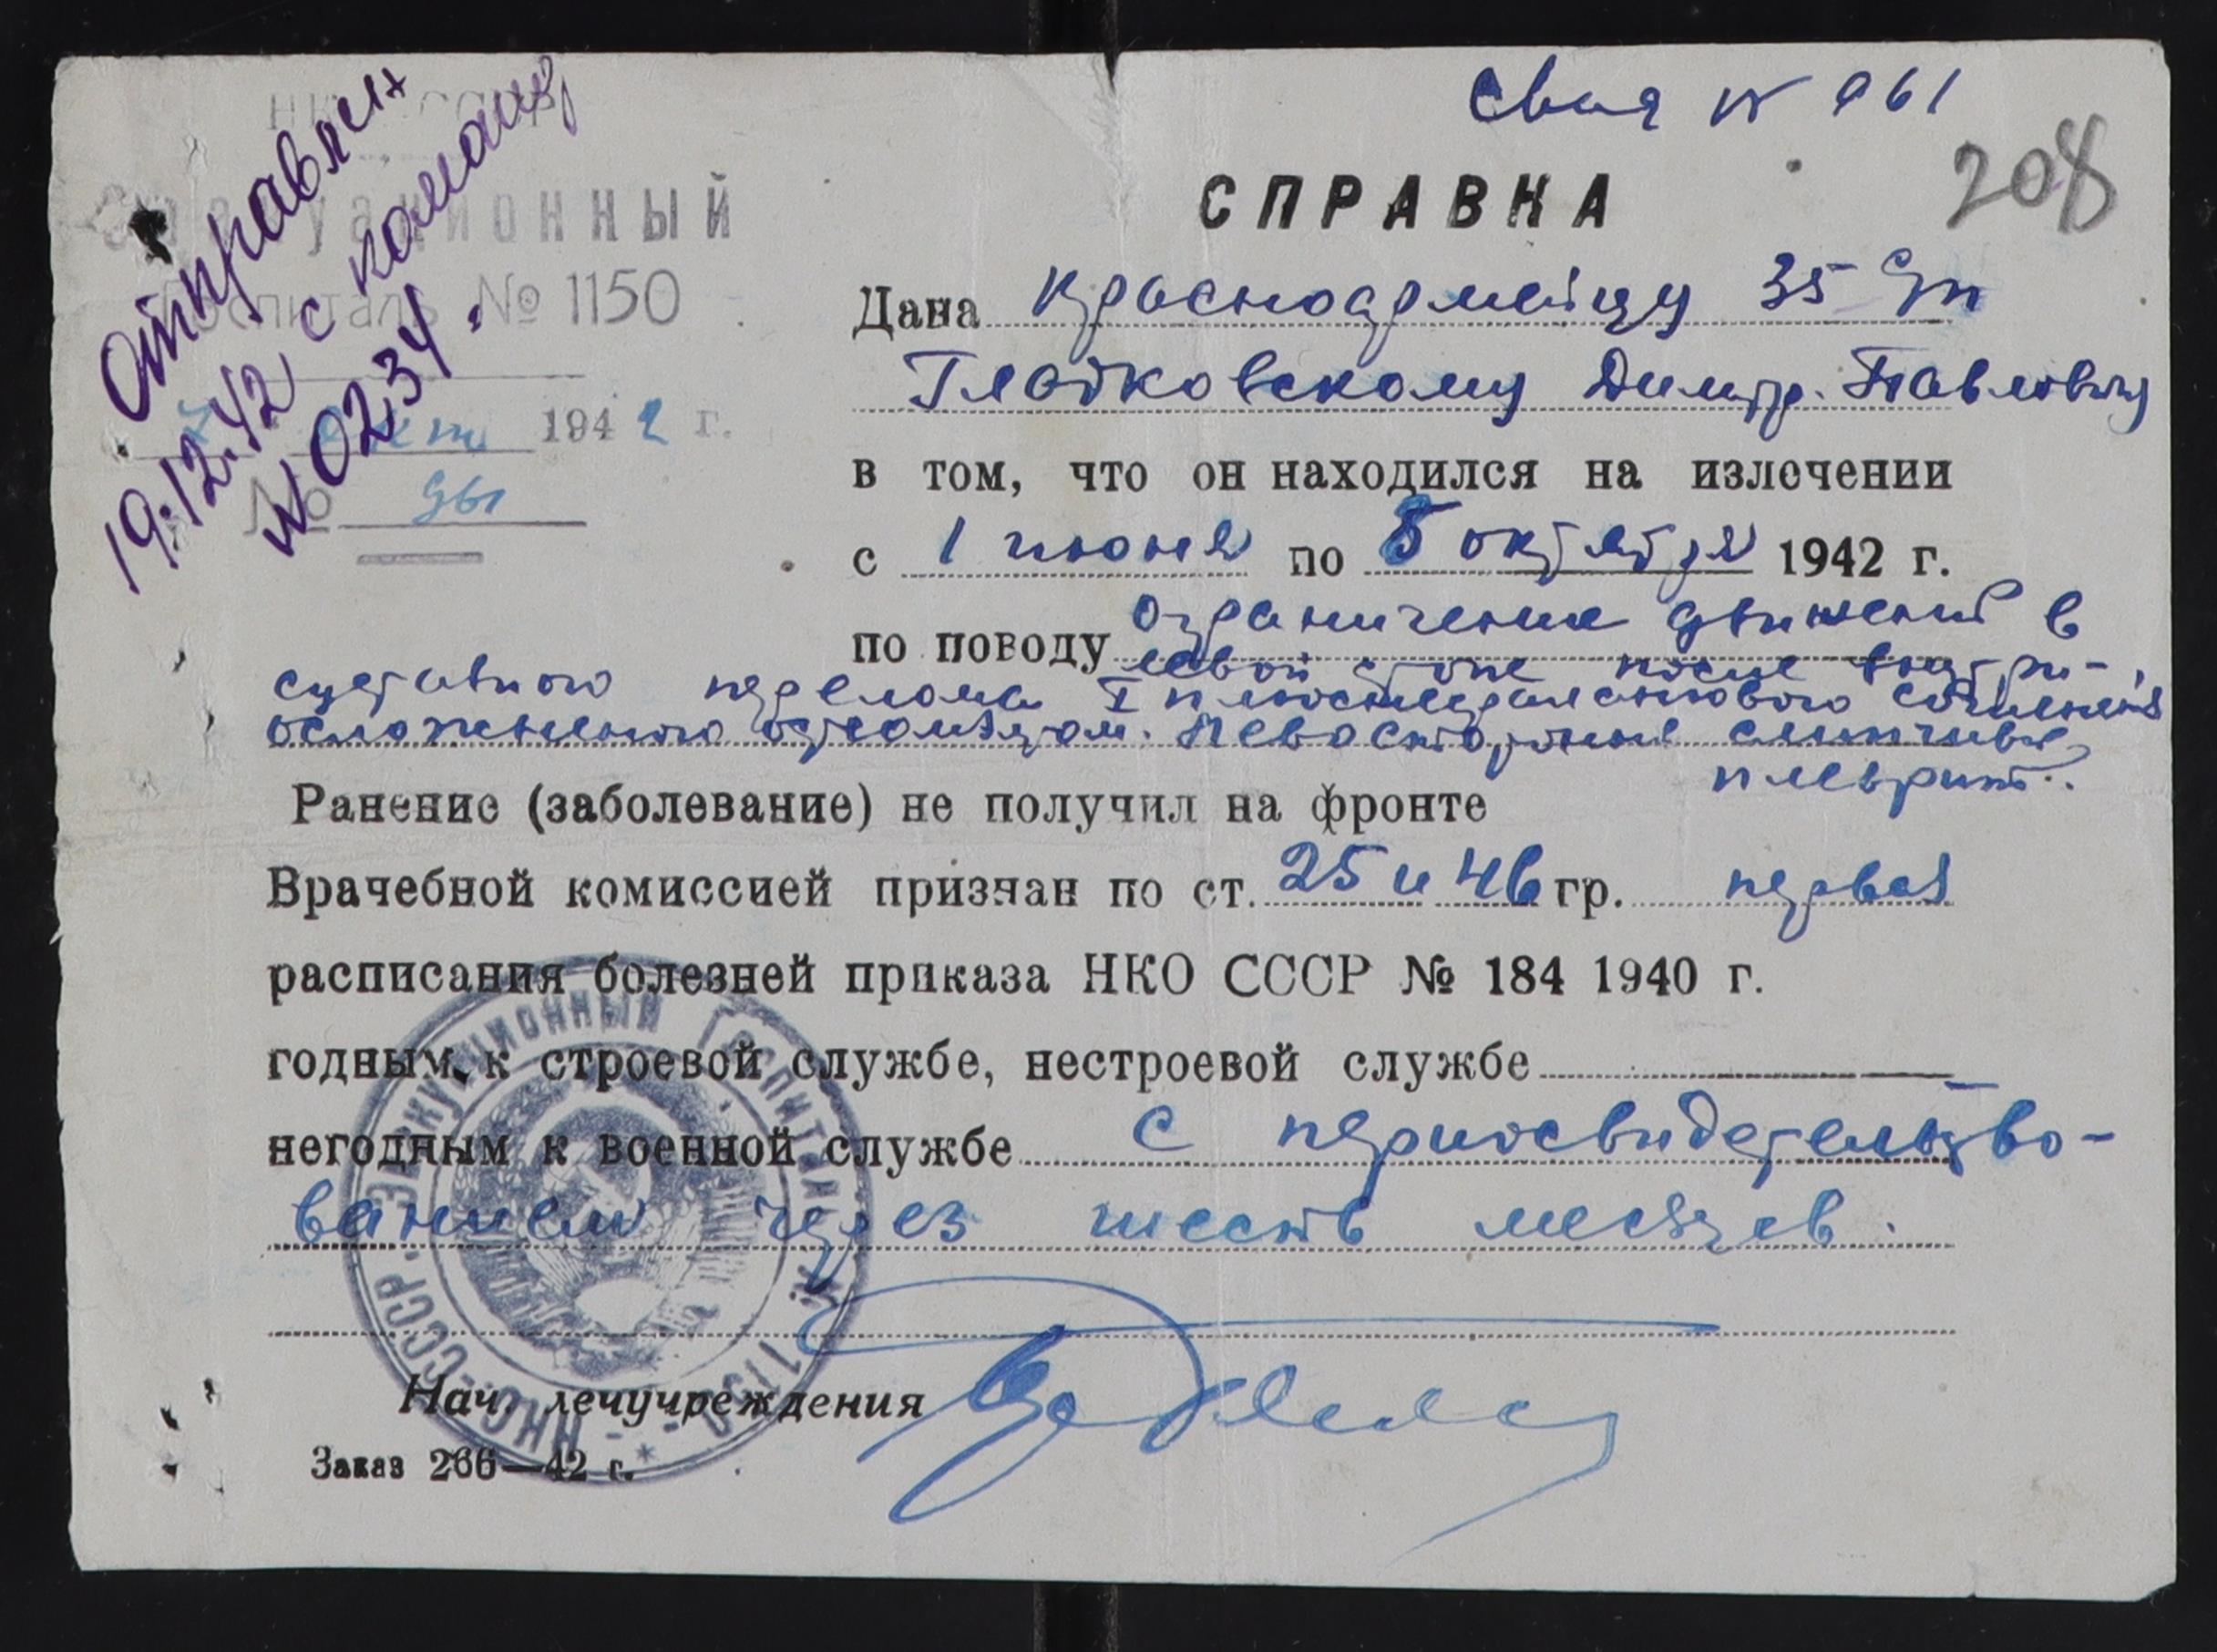 Отправлен
19.12.42 с команд
N 0234.
НКО СССР
Эвакуационный
Госпиталь № 1150
1942 г.
№ 961
Свид N 961
208
СПРАВКА
Дана красноармейцу 35 зп
Гладковскому Димитр. Павловичу
в том, что он находился на излечении
с 1 июня по 8 октября 1942 г.
по поводу ограничение движений в
левой стопе после внутри-
суставного перелома I плюсне
осложненного остеомиэлом. Левосторонний слипчивый
плеврит.
Ранение (заболевание) не получил на фронте
Врачебной комиссией признан по ст. 25 и 46 гр. первая
расписания болезней приказа НКО СССР № 184 1940 г.
годным к строевой службе, нестроевой службе
негодным к военной службе с переосвидетельство-
ванием через шесть месяцев.
Нач. лечучреждения
Заказ 266—42 г.
ЭВАКУАЦИОННЫЙ ГОСПИТАЛЬ № 1150 * НКО-СССР